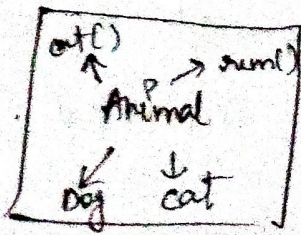 eat() run()
Animal
Dog cat